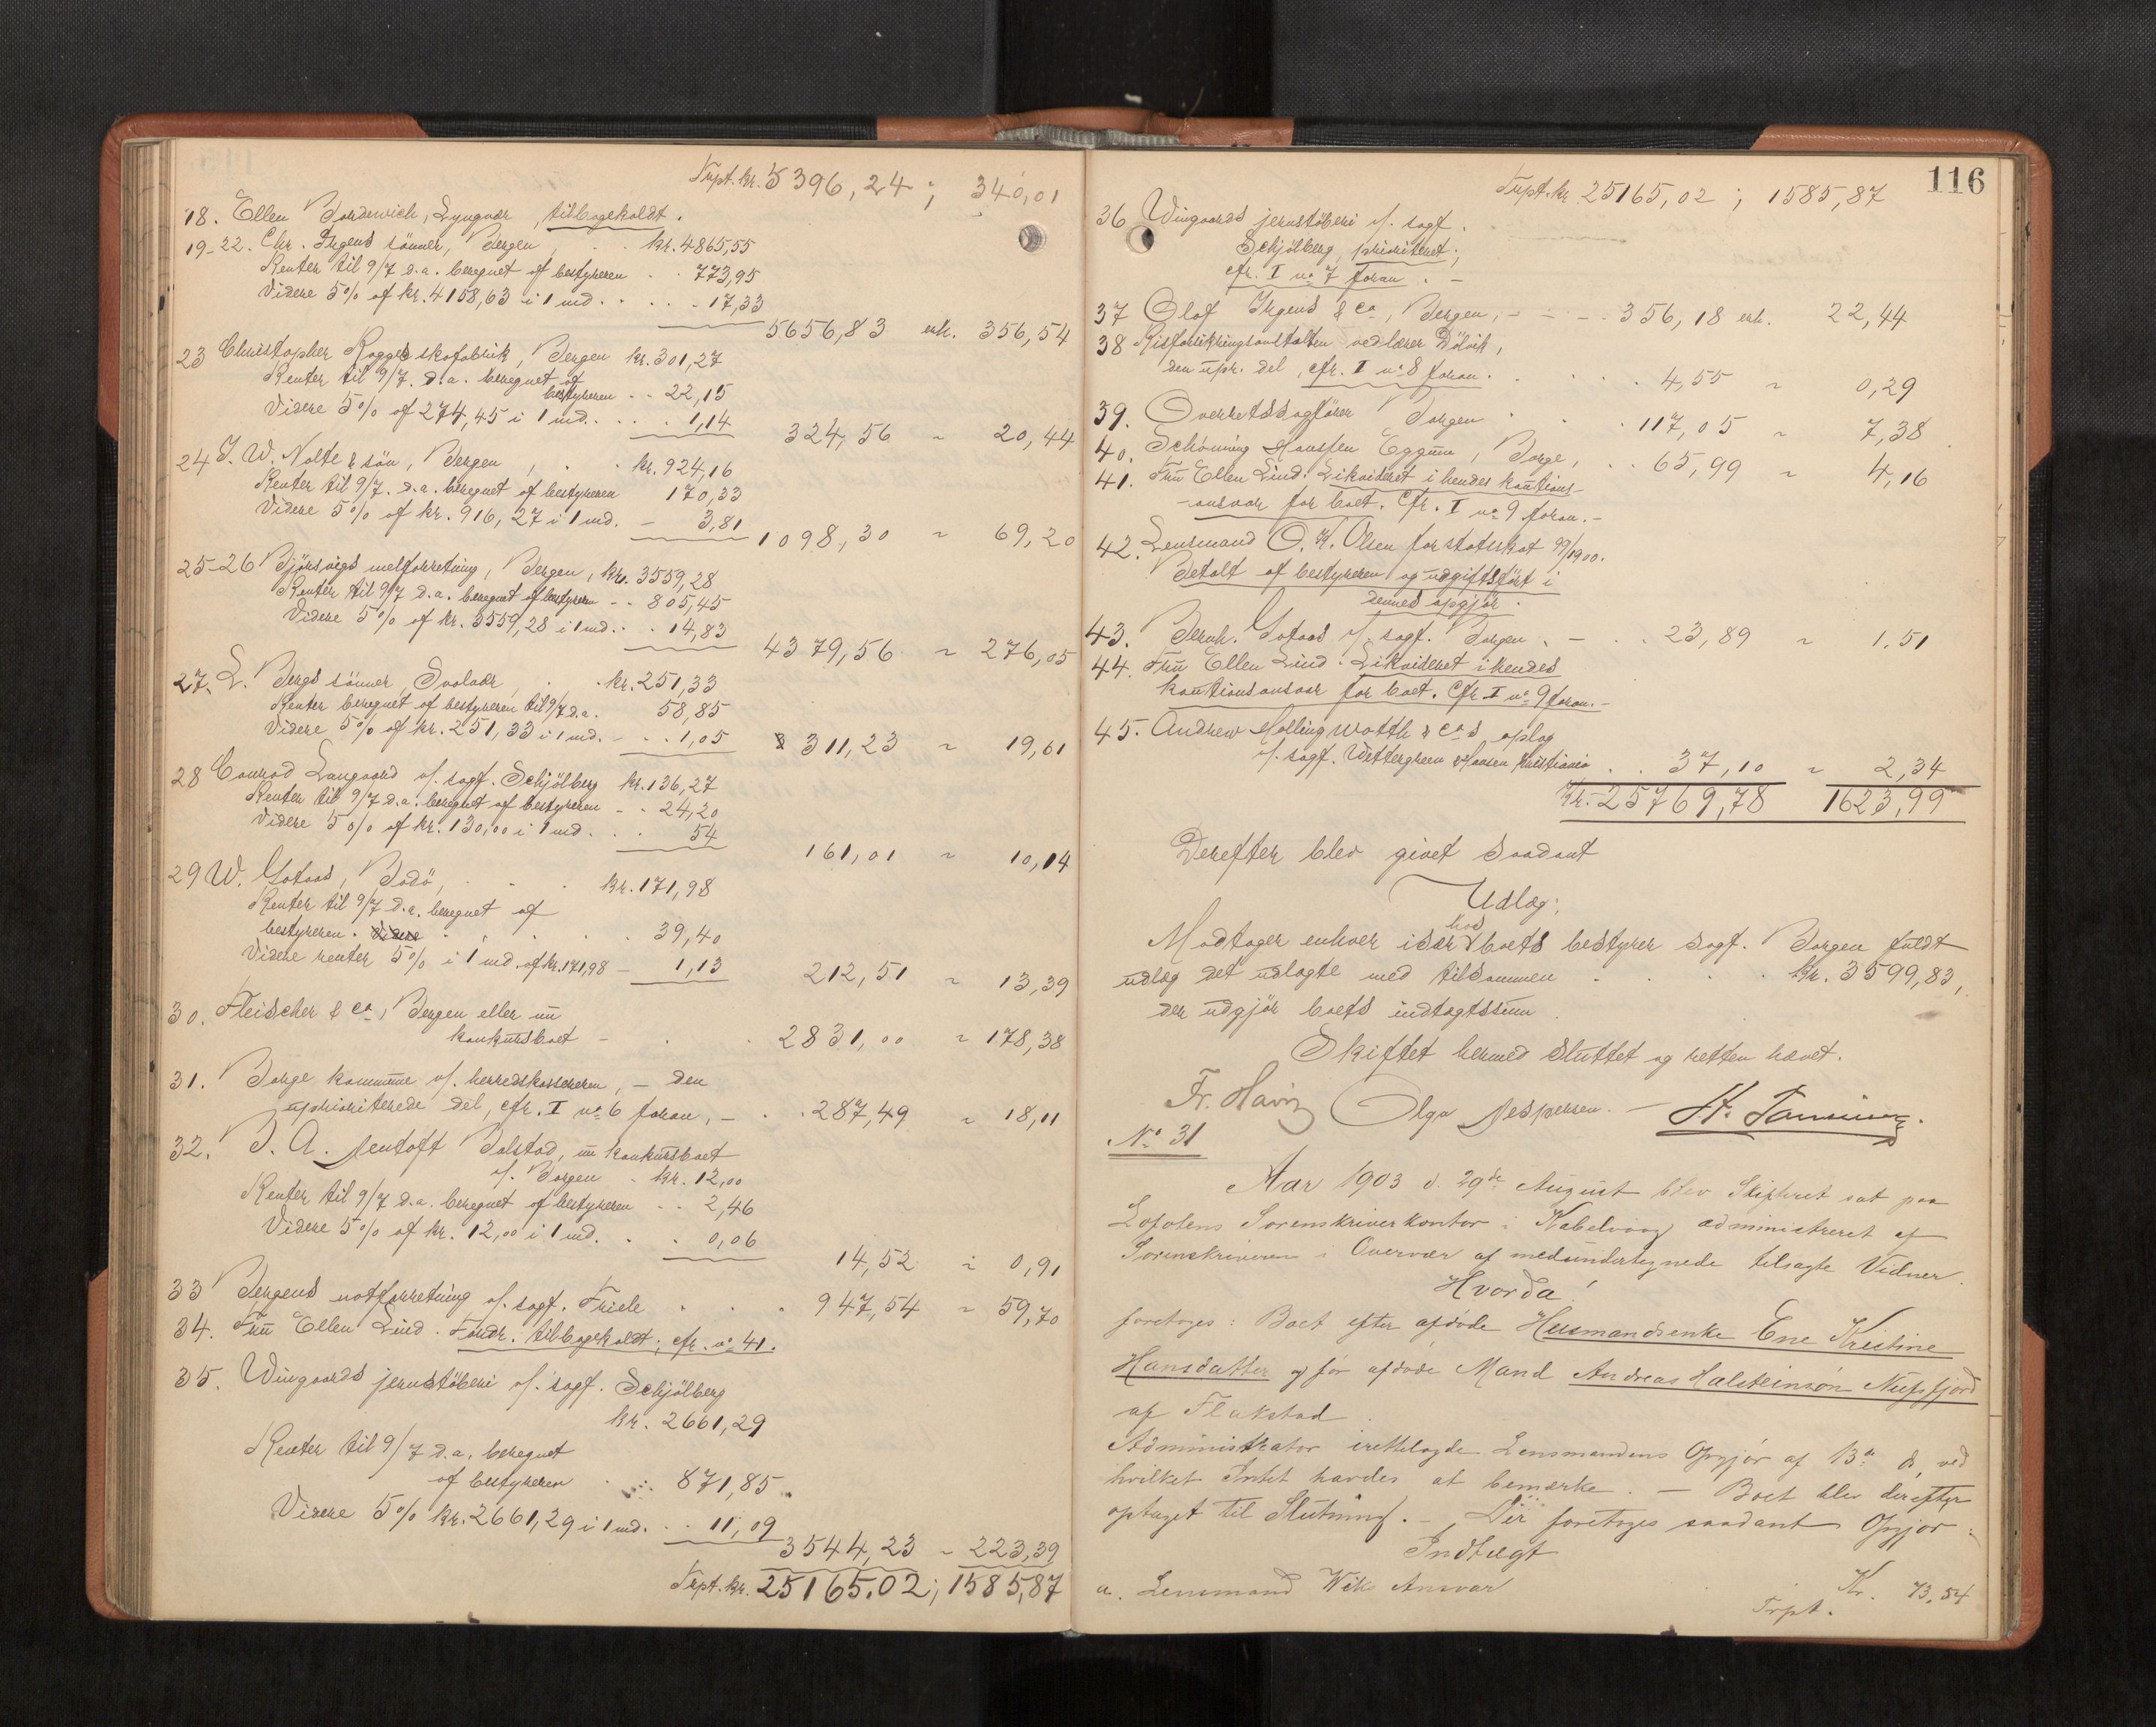 Trpt. kr. 5396,24; 340,01
18. Ellen Bordewich, Lyngvær, tilbagekaldt.
19-22. Chr. Irgens sönner, Bergen, kr. 4865,55
Renter til 9/7 d.a. beregnet af bestyreren 773,95
Videre 5% af kr. 4158,63 i 1 md. 17,33
5656,83 erh. 356,54
23 Christopher Rogges skofabrik, Bergen kr. 301,27
Renter til 9/7. d.a. beregnet af
bestyreren 22,15
Videre 5% af 274,45 i 1 md. 1,14
324,56 " 20,44
24 J. W. Nolte & sön, Bergen, kr. 924,16
Renter til 9/7. d.a. beregnet af bestyreren 170,33
Videre 5% af kr. 916,27 i 1 md. - 3,81
1098,30 " 69,20
25-26 Bjørsvigs melforretning, Bergen, kr. 3559,28
Renter til 9/7 d.a. beregnet af bestyreren 805,45
Videre 5% af kr. 3559,28 i 1 md. 14,83
4379,56 " 276,05
27. L. Bergs sönner, Svolvær, kr. 251,33
Renter beregnet af bestyreren til 9/7 d.a. 58,85
Videre 5% af kr. 251,33 i 1 md. 1,05
311,23 " 19,61
28 Conrad Langaard v/. sagf. Schjölberg kr. 136,27
Renter til 9/7 d.a. beregnet af bestyreren 24,20
Videre 5% af kr. 130,00 i 1 md. 54
161,01 " 10,14
29 W. Gotaas, Bodö, kr. 171,98
Renter til 9/7 d.a. beregnet af
bestyreren. 39,40
Videre renter 5% i 1 md. af kr. 171,98 - 1,13
212,51 " 13,39
30. Fleischer & co, Bergen eller nu
konkursboet - 2831,00 " 178,38
31. Borge kommune v/. herredskassereren, - den
uprioriterede del, cfr. I no 6 foran, - 287,49 " 18,11
32. J. A. Jentoft Bolstad, nu konkursboet
v/. Borgen kr. 12,00
Renter til 9/7 d.a. beregnet af bestyreren 2,46
Videre 5% af kr. 12,00 i 1 md. 0,06
14,52 " 0,91
33 Bergens notforretning v/. sagf. Friele 947,54 " 59,70
34. Fru Ellen Lind. Fordr. tilbagekaldt; cfr. no 41.
35. Wingaards jernstöberi v/. sagf. Schjölberg
kr. 2661,29
Renter til 9/7 d.a. beregnet
af bestyreren 871,85
Videre 5% kr. 2661,29 i 1 md. 11,09
3544,23 " 223,39
Trpt. kr. 25165.02; 1585,87
116
Trpt. kr. 25165,02; 1585,87
36 Wingaards jernstöberi v/. sagf.
Schjölberg, prioriteret;
cfr. I no 7 foran. -
37 Olaf Irgens & co, Bergen, - 356,18 erh. 22,44
38 Kisforsikringsanstalten ved lærer Dölvik,
den upr. del, cfr. I no 8 foran. 4,55 " 0,29
39. Overretssagfører Borgen 117,05 " 7,38
40. Schöning Hanssen Eggum, Borge, 65,99 " 4,16
41. Fru Ellen Lind: Likvideret i hendes kautions-
-ansvar for boet. Cfr. I no 9 foran. -
42. Lensmand O. K. Olsen for statsskat 99/1900.
Betalt af bestyreren og udgiftsfört i
dennes opgjör.
43. Bernh. Gotaas v/. sagf. Borgen. - 23,89 " 1.51
44. Fru Ellen Lind: Likvideret i hendes
kautionsansvar for boet. Cfr. I no 9 foran. -
45. Andrew Hollingworth & co's oplag
v/. sagf. Wettergreen & Hansen Kristiania 37,10 " 2,34
Kr. 25769,78 1623,99
Derefter blev givet saadant
Udlæg:
Modtager enhver især hos boets bestyrer sagf. Borgen fuldt
udlæg det udlagte med tilsammen kr. 3599,83,
der udgjör boets indtægtssum.
Skiftet hermed sluttet og retten hævet.
Fr. Olga Jespersen. -
No 31
Aar 1903 d. 29de August blev Skifteret sat paa
Lofotens Sorenskriverkontor i Kabelvaag administreret af
Sorenskriveren i Overvær af medundertegnede tilsagte Vidner.
Hvorda!
foretoges: Boet efter afdøde Husmandsenke Ene Kristine
Hansdatter og før afdøde Mand Andreas Halsteinsøn Nufsfjord
af Flakstad.
Administrator irettelagde Lensmandens Opgjør af 13de ds, ved
hvilket Intet havdes at bemærke. - Boet blev derefter
optaget til Slutning. - Der foretoges saadant Opgjør:
Indtægt
a. Lensmand Wiks Ansvar Kr. 73.54
Trpt.